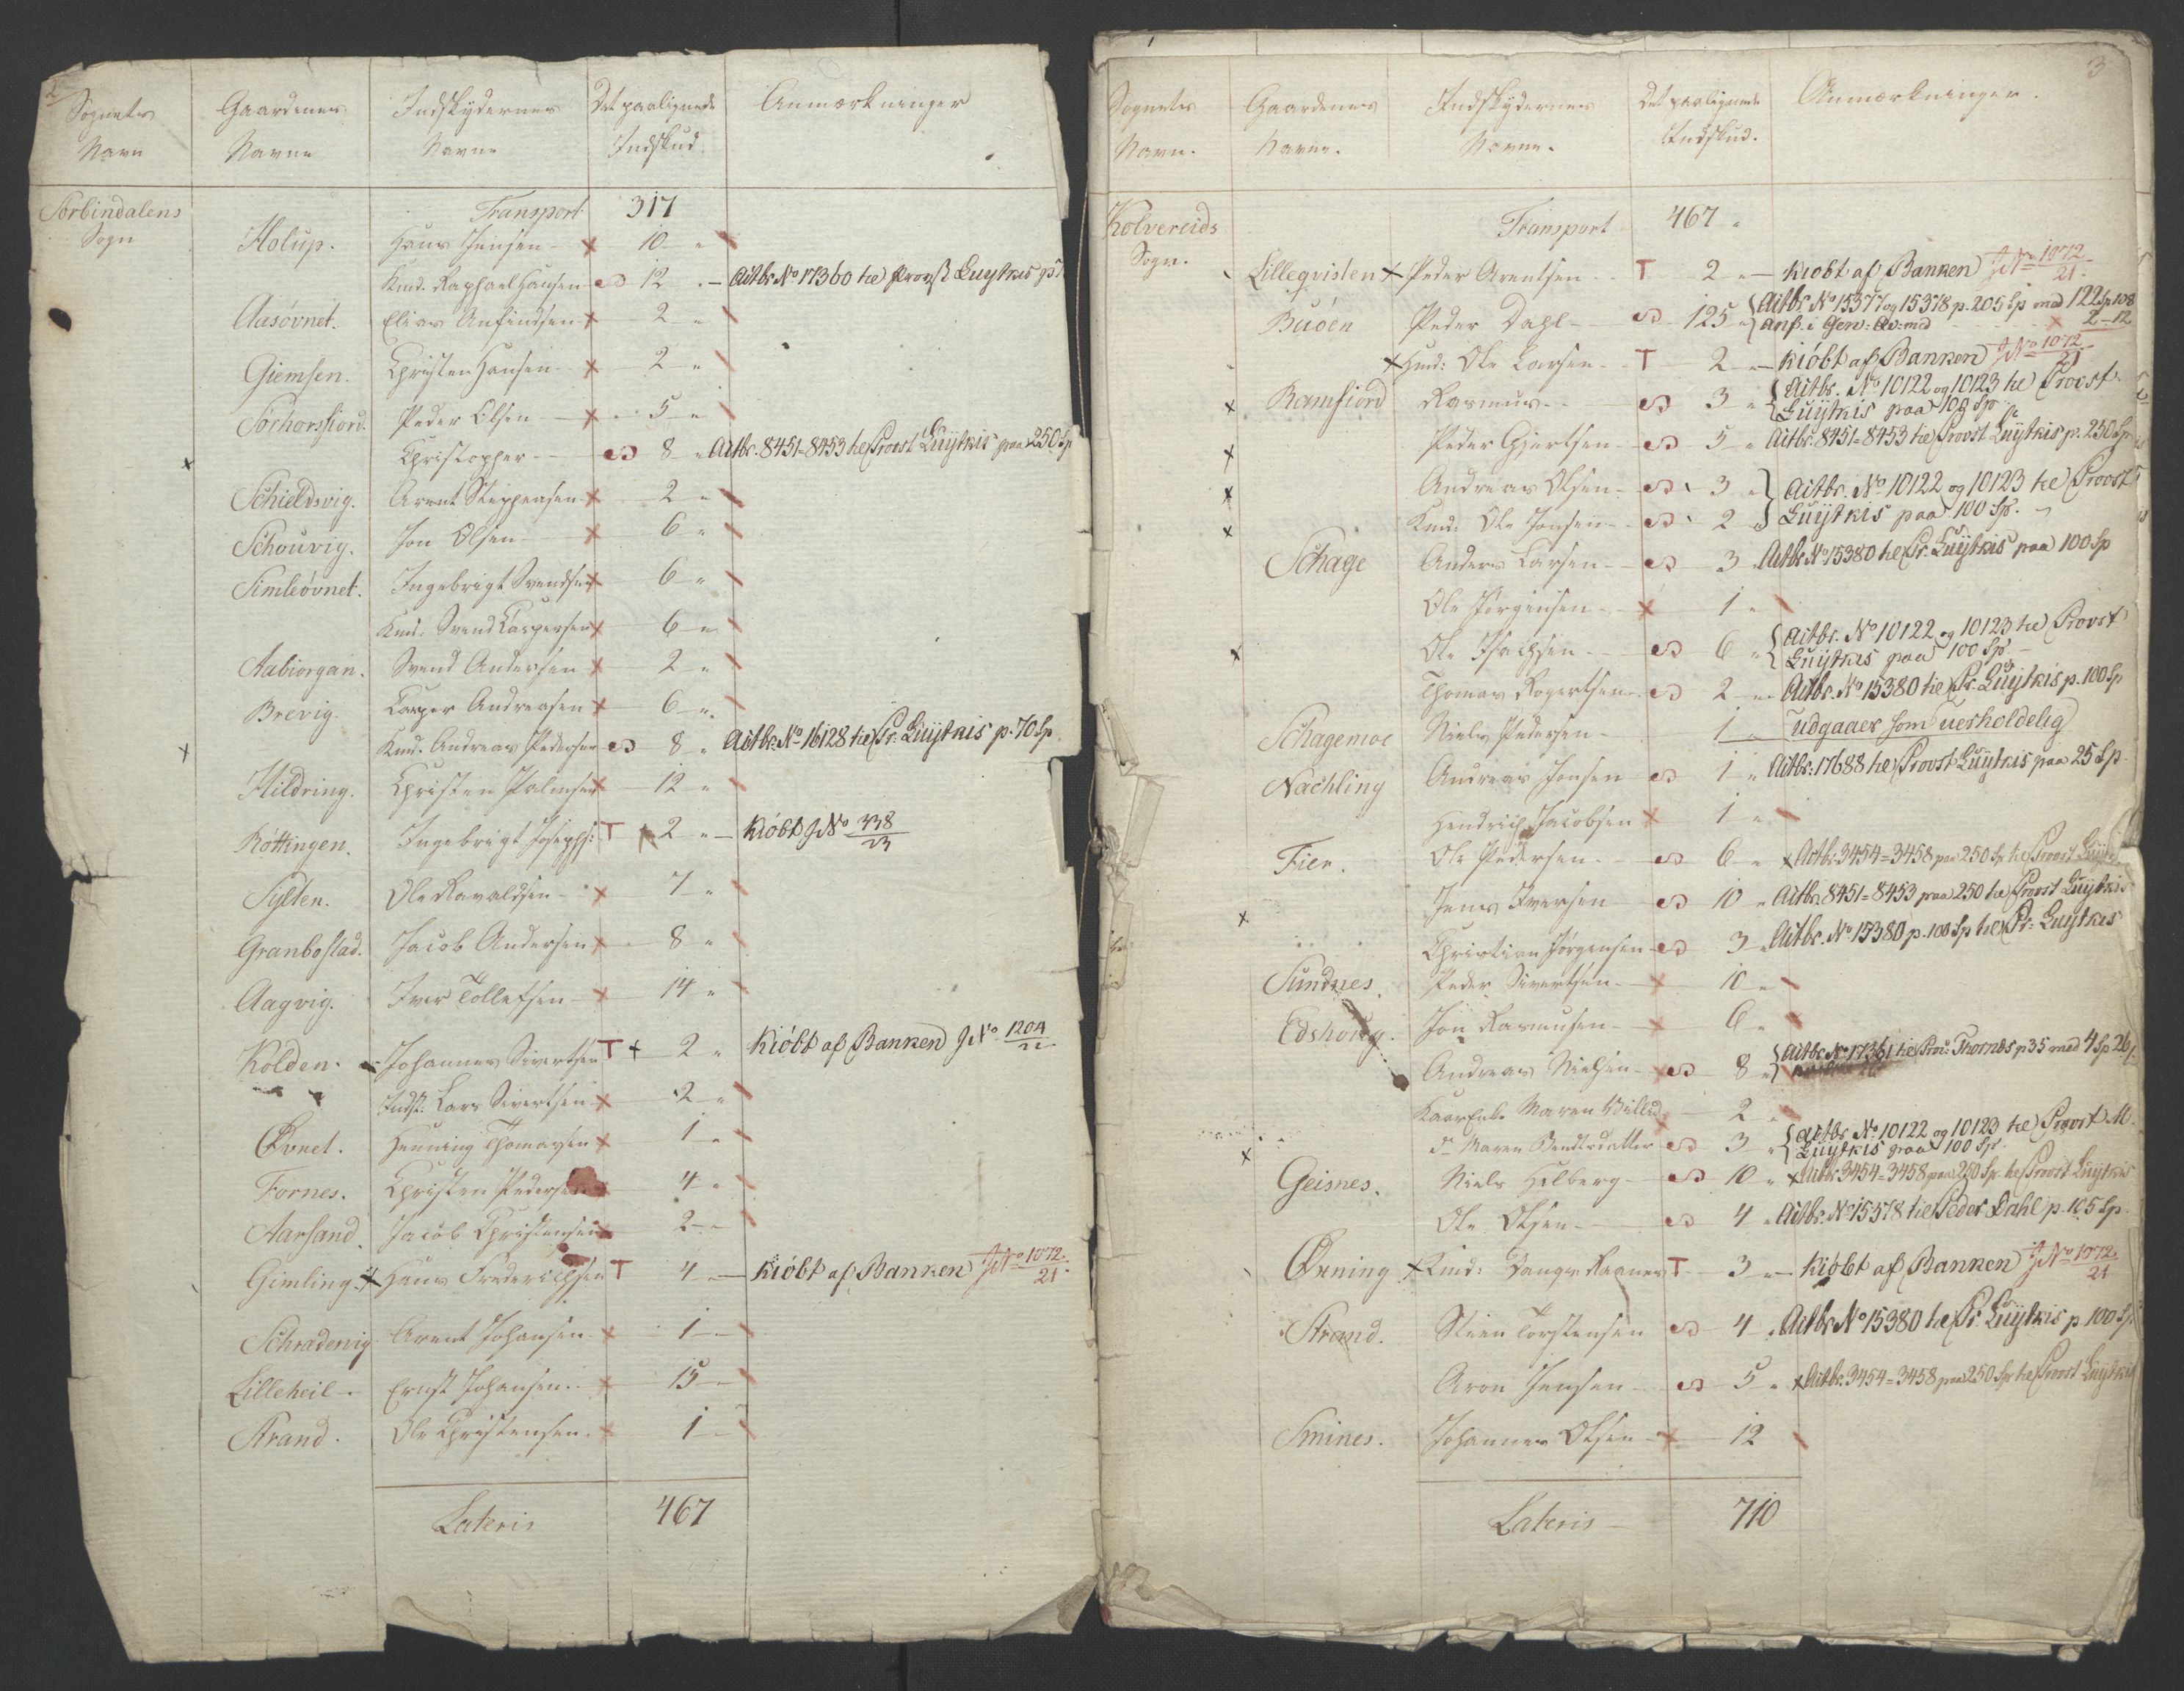 2
Sognets Navn | Gaardenes Navne | Indskydernes Navne | Det paalignede Indskud | Anmærkninger
Sørbindalens Sogn
Transport 317
Holup. Hans Jensen × 10 "
Kmd. Raphael Hansen 12 " Actbr. No 17360 til Provst Luytkis p
Aasövnet. Elias Anfindsen × 2 "
Giemsen. Christen Hansen × 2 "
Sörhorsfiord. Peder Olsen × 5 "
× Christopher 8 " Actbr. 8451=8453 til Provst Luijtkis paa 250 Sp
Schieldsvig. Arent Steppensen × 2 "
Schouvig. Jon Olsen × 6 "
Simleövnet. Ingebrigt Svendsen × 6 "
Kmd. Svend Caspersen × 6 "
Aabiorgan. Svend Andersen × 2 "
Brevig. Casper Andreasen × 6 "
× Kmd. Andreas Pedersen 8 " Actbr. No 16128 til Pr. Luijtkis p. 70 Sp.
Hildring. Christen Palmsen × 12 "
Röttingen. Ingebrigt Josephs: T 2 " Kiöbt JNo 338/23
Sylten. Ole Ravaldsen × 7 "
Granbostad. Jacob Andersen × 8 "
Aagvig. Iver Tollefsen × 14 "
Kolden. Johannes Sivertsen T + 2 " Kiöbt af Banken JNo 1204/22
Indst. Lars Sivertsen × 2 "
Øvnet. Henning Thomassen × 1 "
Fornes. Christen Pedersen 4 "
Aarsand. Jacob Christensen 2 "
Gimling. × Hans Frederichsen T 4 " Kiöbt af Banken JNo 1072/21.
Schradervig Arent Johansen × 1 "
Lilleheil Ernst Johansen × 15 "
Strand. Ole Christensen × 1 "
Lateris 467
3
Sognets Navn. | Gaardenes Navne. | Indskydernes Navne. | Det paalignede Indskud. | Anmærkninger.
Kolvereids Sogn.
Transport 467 "
Lilleqvisten × Peder Arentsen T 2 " Kiobt af Banken JNo 1072/21.
Buöen Peder Dahl 125 " { Actbr. No 15377 og 15378 p. 205 Sp med 122 Sp 108
anf. i Gen: Qv: med × 2-12
× Huud: Ole Larsen T 2 " Kiöbt af Banken JNo 1072/21
× Ramfiord Rasmus 3 " { Actbr. No 10122 og 10123 til Provst
Luijtkis paa 100 Sp.
× Peder Gjertsen 5 " Actbr. 8451=8453 til Provst Luijtkis p. 250 Sp
× Andreas Olsen 3 " } Actbr. No 10122 og 10123 til Provst
× Kmd: Ole Jonsen 2 " } Luijtkis paa 100 Sp.
Schage Anders Larsen 3 " Actbr. No 15380 til Pr. Luijtkis paa 100 Sp
Ole Jörgensen × 1 "
× Ole Isachsen 6 " { Actbr. No 10122 og 10123 til Provst
Luijtkis paa 100 Sp
Thomas Rogertsen 2 " Actbr. No 15380 til Pr. Luijtkis p. 100 Sp
Schagemoe Niels Pedersen 1 " udgaaer som uerholdelig
Nachling Andreas Jonsen 1 " Actbr. 17688 til Provst Luijtkis paa 25 Sp
Hendrich Jacobsen × 1 "
Fier. Ole Pedersen 6 " × Actbr. 3454=3458 paa 250 Sp til Provst Luijtkis
× Jens Iversen 10 " Actbr. 8451=8453 paa 250 til Provst Luijtkis
Christian Jörgensen 3 " Actbr. No 15380 p. 100 Sp til Pr: Luijtkis
Sundnes. Peder Sivertsen × 10 "
Edshoug. Jon Rasmusen × 6 "
Andreas Nielsen × 8 " { Actbr. No 17361 til Proc: Thornes p 35 med 4 Sp 26
Kaarenke Maren 2 "
× do Maren Bendtsdatter 3 " { Actbr. No 10122 og 10123 til Provst M.
Luijtkis paa 100 Sp.
Geisnes. Niels Holberg 10 " × Actbr. 3454=3458 paa 250 Sp til Provst Luijtkis
Ole Olsen 4 " Actbr. No 15378 til Peder Dahl p. 105 Sp.
Ørning × Kmd: Raanes T 3 " Kiöbt af Banken JNo 1072/21
Strand. Steen Torstensen 4 " Actbr. No 15380 til Pr. Luijtkis p 100 Sp
Aron Jensen 5 " × Actbr. 3454=3458 paa 250 Sp til Provst Luijtkis
Smines. Johannes Olsen × 12
Lateris 710